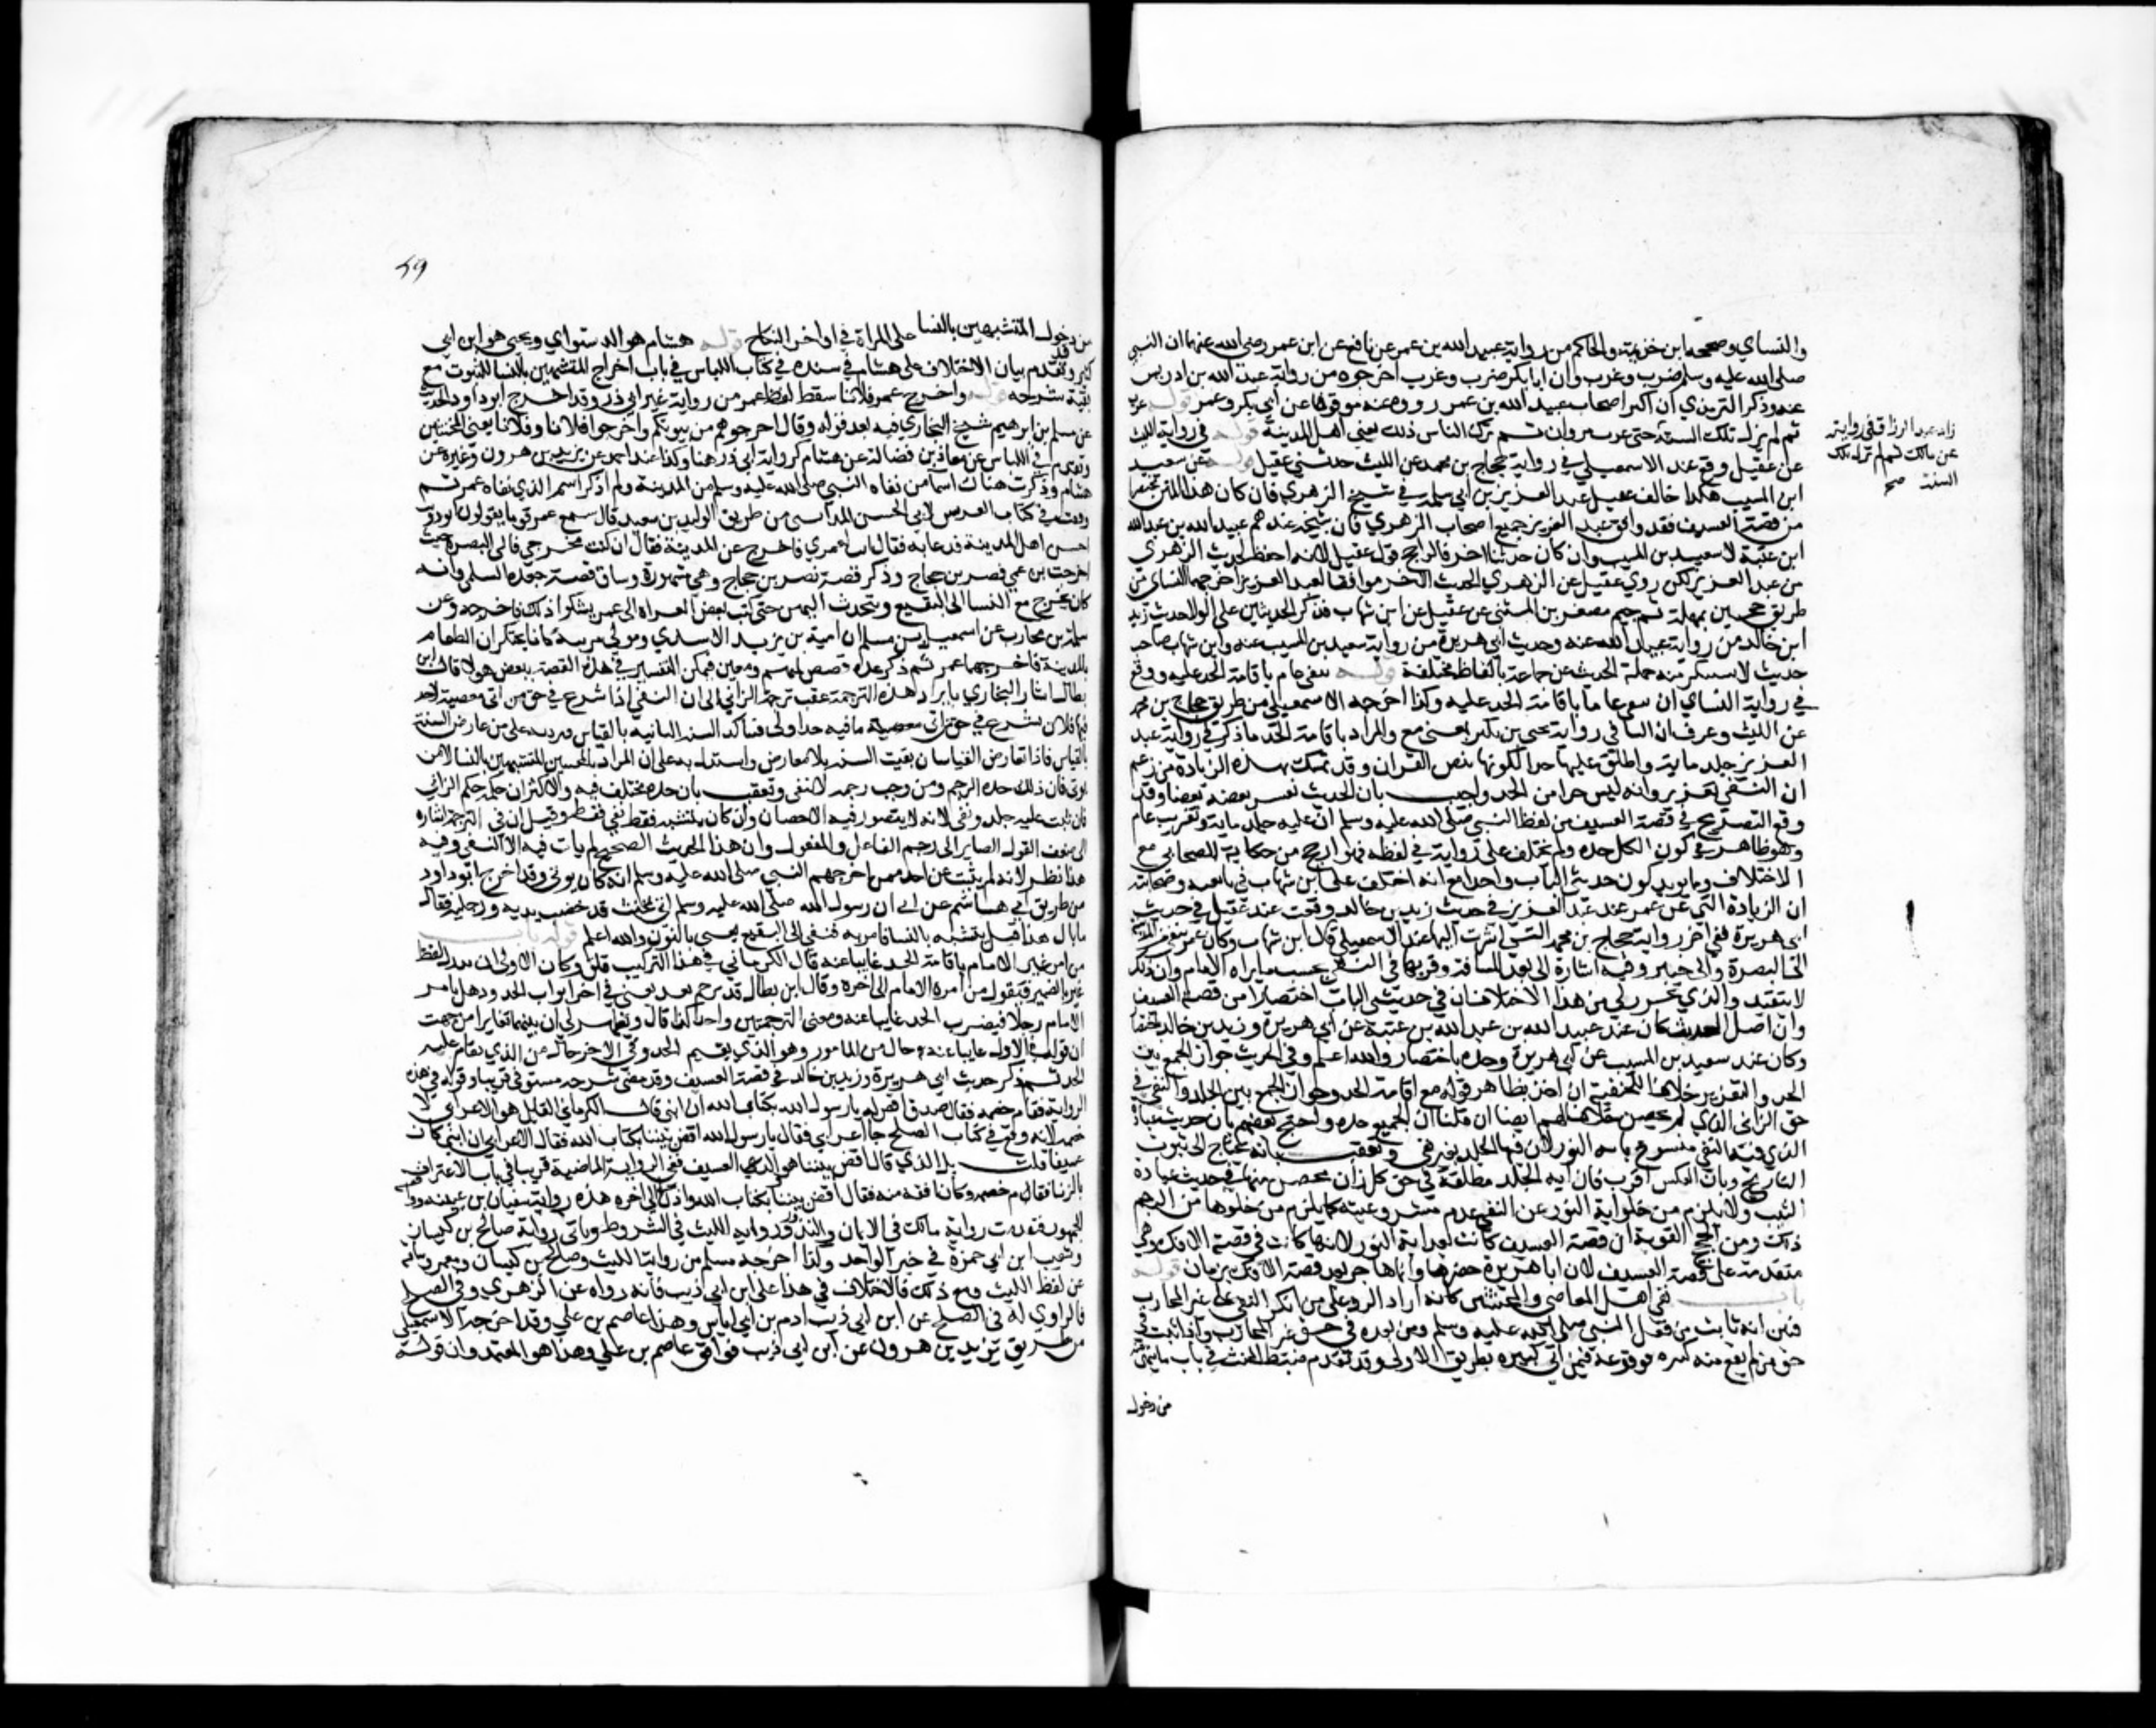 والنساي وصححه ابن خزيمة والحاكم من رواية عبيد الله بن عمر عن نافع عن ابن عمر رضي الله عنهما ان النبي
صلى الله عليه وسلم ضرب وغرب وان ابا بكر ضرب وغرب اخرجوه من رواية عبد الله بن ادريس
عنه وذكر الترمذي ان اكثر اصحاب عبيد الله بن عمر رووه عنه موقوفا عن ابي بكر وعمر قوله غرب
ثم لم يزل تلك السنة حتى غرب مروان ثم ترك الناس ذلك يعني اهل المدينة قوله في رواية الليث
عن عقيل وقع عند الاسمعيلي في رواية حجاج بن محمد عن الليث حدثني عقيل قوله عن سعيد
ابن المسيب هكذا خالف عقيل عبد العزيز بن ابي سلمة في شيخ الزهري فان كان هذا المتن مختصرا
من قصة العسيف فقد وافق عبد العزيز جميع اصحاب الزهري فان شيخه عندهم عبيد الله بن عبد الله
ابن عتبة لا سعيد بن المسيب وان كان حديثا اخر فالراجح قول عقيل لانه احفظ لحديث الزهري
من عبد العزيز لكن روي عقيل عن الزهري الحديث الاخر موافقا لعبد العزيز اخرجهما النساي من
طريق حجين بمهملة ثم جيم مصغر بن المثنى عن عقيل عن ابن شهاب فذكر الحديثين على الولا حديث زيد
ابن خالد من رواية عبيد الله عنه وحديث ابي هريرة من رواية سعيد بن المسيب عنه وابن شهاب صاحب
حديث لا يستنكر منه حمله الحديث عن جماعة بالفاظ مختلفة قوله بنفي عام باقامة الحد عليه ووقع
في رواية النساي ان ينفى عاما باقامة الحد عليه وكذا اخرجه الاسمعيلي من طريق حجاج بن محمد
عن الليث وعرف ان البا في رواية يحيى بن بكير بمعنى مع والمراد باقامة الحد ما ذكر في رواية عبد
العزيز جلد ماية واطلق عليها حدا لكونها بنص القران وقد تمسك بهذه الزيادة من زعم
ان النفي تعزير وانه ليس جزا من الحد واجيب بان الحديث يفسر بعضه بعضا وقد
وقع التصريح في قصة العسيف من لفظ النبي صلى الله عليه وسلم ان عليه جلد ماية وتغريب عام
وهو ظاهر في كون الكل حده ولم يختلف على راويه في لفظه فهو ارجح من حكاية الصحابي مع
الاختلاف ومما يويد كون حديثي الباب واحدا مع انه اختلف على ابن شهاب في تابعيه وصحابيه
ان الزيادة التي عن عمر عند عبد العزيز في حديث زيد بن خالد وقعت عند عقيل في حديث
ابي هريرة ففي اخر رواية حجاج بن محمد التي اشرت اليها عند الاسمعيلي قال ابن شهاب وكان عمر ينفي من المدينة
الى البصرة والى خيبر وفيه اشارة الى بعد المسافة وقربها في النفي بحسب ما يراه الامام وان ذلك
لا يتقيد والذي تحرر لي من هذا الاختلاف ان في حديثي الباب اختصارا من قصة العسيف
وان اصل الحديث كان عند عبيد الله بن عبد الله بن عتبة عن ابي هريرة وزيد بن خالد
وكان عند سعيد بن المسيب عن ابي هريرة وحده باختصار والله اعلم وفي الحديث جواز الجمع بين
الحد والتعزير خلافا للحنفية ان اخذ بظاهر قوله مع اقامة الحد وجواز الجمع بين الجلد والنفي في
حق الزاني الذي لم يحصن خلافا لهم ايضا ان قلنا ان الجميع حده واحتج بعضهم بان حديث عبادة
الذي فيه النفي منسوخ باية النور لان فيها الجلد بغير نفي وتعقب بانه يحتاج الى ثبوت
التاريخ وبان العكس اقرب فان اية الجلد مطلقة في حق كل زان محصن منها في حديث عبادة
الثيب ولا يلزم من خلو اية النور عن النفي عدم مشروعيته كما يلزم من خلوها من الرجم
ذلك ومن الحجج القوية ان قصة العسيف كانت بعد اية النور لانها كانت في قصة الافك وهي
متقدمة على قصة العسيف لان ابا هريرة حضرها وانما هاجر بعد قصة الافك بزمان قوله
باب نفي اهل المعاصي والمخنثين كانه اراد الرد على من انكر النفي على غير المحارب
فبين انه ثابت من فعل النبي صلى الله عليه وسلم ومن بعده في حق غير المحارب واذا ثبت في
حق من لم يقع منه كبيرة فوقوعه فيمن اتى كبيرة بطريق الاولى وقد تقدم ضبط المخنث في باب ما ينهى
من دخول
زاد عبد الرزاق في روايته
عن مالك ثم لم تزل تلك
السنة صح
٥٩
من دخول المتشبهين بالنسا على المراة في اواخر النكاح قوله هشام هو الدستواي ويحيى هو ابن ابي
كثير وقد تقدم بيان الاختلاف على هشام في سنده في كتاب اللباس في باب اخراج المتشبهين بالنسا للبيوت مع
بقية شرحه قوله واخرج عمر فلانا سقط لفظ عمر من رواية غير ابي ذر وقد اخرج ابو داود الحديث
عن مسلم بن ابرهيم شيخ البخاري فيه بعد قوله وقال اخرجوهم من بيوتكم واخرجوا فلانا وفلانا يعني المخنثين
وتقدم في اللباس عن معاذ بن فضالة عن هشام كرواية ابي ذر هنا وكذا عند احمد عن يزيد بن هرون وغيره عن
هشام وذكرت هناك اسما من نفاه النبي صلى الله عليه وسلم من المدينة ولم اذكر اسم الذي نفاه عمر ثم
وقفت في كتاب المغربين لابي الحسن المدايني من طريق الوليد بن سعيد قال سمع عمر قوما يقولون ابو ذويب
احسن اهل المدينة فدعا به فقال انت لعمري فاخرج عن المدينة فقال ان كنت مخرجي فالى البصرة حيث
اخرجت ابن عمي نصر بن حجاج وذكر قصة نصر بن حجاج وهي مشهورة وساق قصة جعدة السلمي وانه
كان يخرج مع النسا الى البقيع ويتحدث اليهن حتى كتب بعض الغزاة الى عمر يشكو ذلك فاخرجه وعن
سلمة بن محارب عن اسمعيل بن مسلم ان امية بن يزيد الاسدي ومولى مزينة كانا يحتكران الطعام
بالمدينة فاخرجهما عمر ثم ذكر عدة قصص لمبهم ومعين فيمكن التفسير في هذه القصة ببعض هولا قال ابن
بطال اشار البخاري بايراد هذه الترجمة عقب ترجمة الزاني الى ان النفي اذا شرع في حق من اتى معصية لا حد
فيها فلان يشرع في حق من اتى معصية ما فيه حد اولى فتتاكد السنة الثابتة بالقياس ليرد به على من عارض السنة
بالقياس فاذا تعارض القياسان بقيت السنة بلا معارض واستدل به على ان المراد بالمخنثين المتشبهين بالنسا لا من
يوتى فان ذلك حده الرجم ومن وجب رجمه لا ينفى وتعقب بان حده مختلف فيه والاكثر ان حكمه حكم الزاني
فان ثبت عليه جلد ونفي لانه لا يتصور فيه الاحصان وان كان يتشبه فقط نفي فقط وقيل ان في الترجمة اشارة
الى ضعف القول الصاير الى رجم الفاعل والمفعول وان هذا الحديث الصحيح لم يات فيه الا النفي وفيه
هذا نظر لانه لم يثبت عن احد ممن اخرجهم النبي صلى الله عليه وسلم انه كان يوتى وقد اخرج ابو داود
من طريق ابي هاشم عن ابي ان رسول الله صلى الله عليه وسلم اتي بمخنث قد خضب يديه ورجليه فقال
ما بال هذا قيل يتشبه بالنسا فامر به فنفي الى النقيع يعني بالنون والله اعلم قوله باب
من امر غير الامام باقامة الحد غايبا عنه قال الكرماني في هذا التركيب قلق وكان الاولى ان يبدل لفظ
غير بالضمير فيقول من امره الامام الى اخره وقال ابن بطال قد ترجم بعد يعني في اخر ابواب الحدود هل يامر
الامام رجلا فيضرب الحد غايبا عنه ومعنى الترجمتين واحد كذا قال ويظهر لي ان بينهما تغايرا من جهة
ان قوله في الاول غايبا عنه حال من المامور وهو الذي يقيم الحد وفي الاخر حال من الذي يقام عليه
الحد ثم ذكر حديث ابي هريرة وزيد بن خالد في قصة العسيف وقد مضى شرحه مستوفى قريبا وقوله في هذه
الرواية فقام خصمه فقال صدق اقض له يا رسول الله بكتاب الله ان ابني قال الكرماني القايل هو الاعرابي لا
خصمه لانه وقع في كتاب الصلح جا اعرابي فقال يا رسول الله اقض بيننا بكتاب الله فقال الاعرابي ان ابني كان
عسيفا قلت بل الذي قال اقض بيننا هو والد العسيف ففي الرواية الماضية قريبا في باب الاعتراف
بالزنا فقام خصمه وكان افقه منه فقال اقض بيننا بكتاب الله واذن لي الى اخره هذه رواية سفيان بن عيينة ووافقه
الجمهور فتقدمت رواية مالك في الايمان والنذور ورواية الليث في الشروط وياتي رواية صالح بن كيسان
وشعيب ابن ابي حمزة في خبر الواحد وكذا اخرجه مسلم من رواية الليث وصالح بن كيسان ومعمر وساقه
عن لفظ الليث ومع ذلك فالاختلاف في هذا على ابن ابي ذيب فانه رواه عن الزهري وفي الصلح
فالراوي له في الصلح عن ابن ابي ذيب ادم بن ابي اياس وهذا عاصم بن علي وقد اخرجه الاسمعيلي
من طريق يزيد بن هرون عن ابن ابي ذيب فوافق عاصم بن علي وهذا هو المعتمد وان قوله